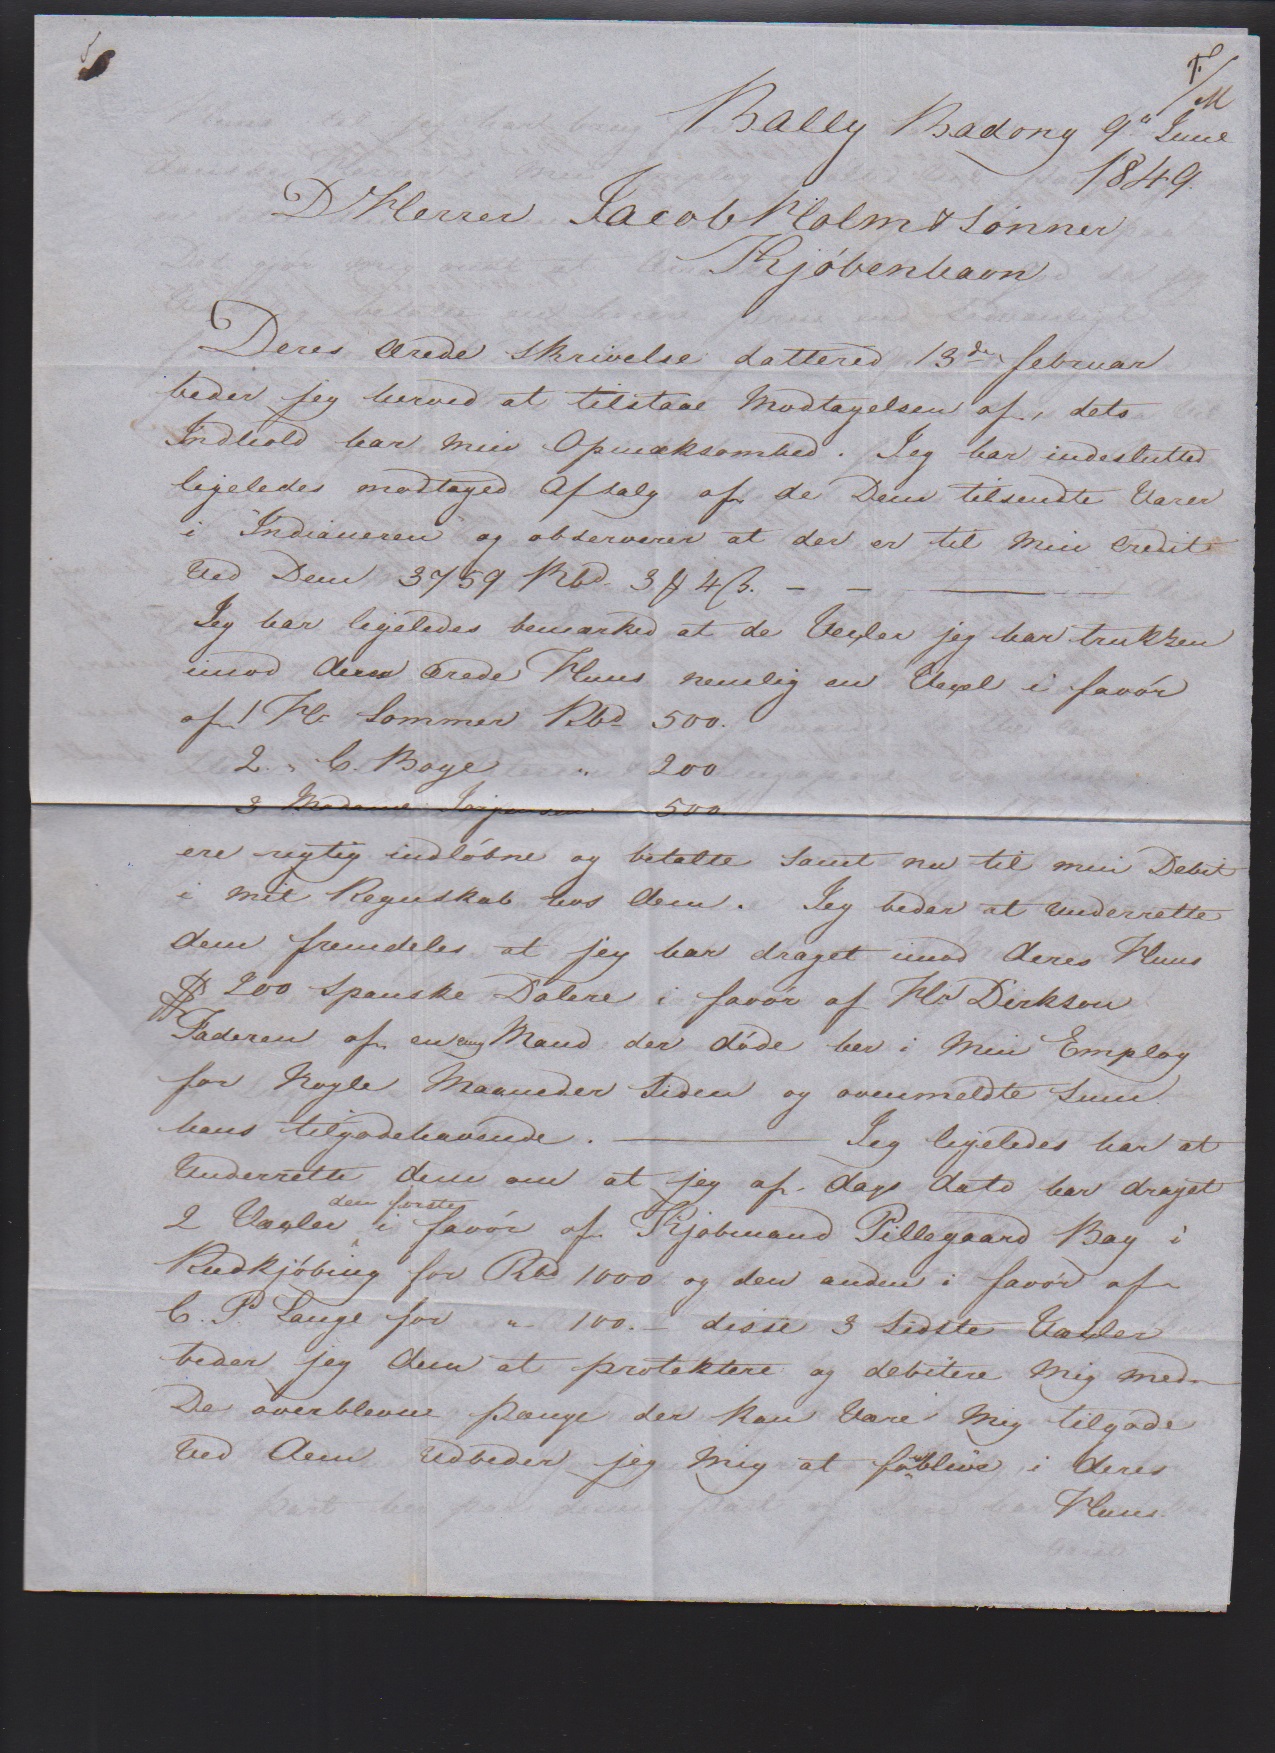 F/M
Bally Badong 9" June
1849.
D'Herrer Jacob Holm & Sønner
Kjóbenhavn
Deres ærede skrivelse dattered 13de februar
beder jeg herved at tilstaae Modtagelsen af, dets
Indhold har min Opmæksomhed. Jeg har indeslutted
ligeledes modtaged Afsalg af de Dem tilsendte Varer
i "Indianeren" og observerer at der er til Min Credit
Ved Dem 3759 Rbd. 3 ₰ 4 ß. — —
Jeg har ligeledes bemærked at de Vexler jeg har trukken
imod deres ærede Huus nemlig en Vexel i favór
af 1 Hr Sommer Rbd 500.
2 " C. Boye " 200
3 Madame Jørgensen 500.
ere rigtig indlóbne og betalte samt nu til min Debit
i mit Regnskab hos dem. Jeg beder at Underrette
dem fremdeles at jeg har draget imod deres Huus
$ 200 Spanske Dalere i favór af Hr Dirksen
Faderen af en ung Mand der dóde her i Min Employ
for Nogle Maaneder Siden og ovenmeldte Sum
hans tilgodehavende. — Jeg ligeledes har at
Underrette dem om at jeg af dags dato har draget
2 Vexler den forste i favór af Kjøbmand Pillegaard Bay i
Rudkjóbing for Rbd 1000 og den anden i favór af
C. P. Lange for " 100. — disse 3 Sidste Vexler
beder jeg dem at protektere og debitere Mig med
De overblevne penge der kan Være Mig tilgode
Ved dem Udbeder jeg Mig at forblive i deres
Huus.